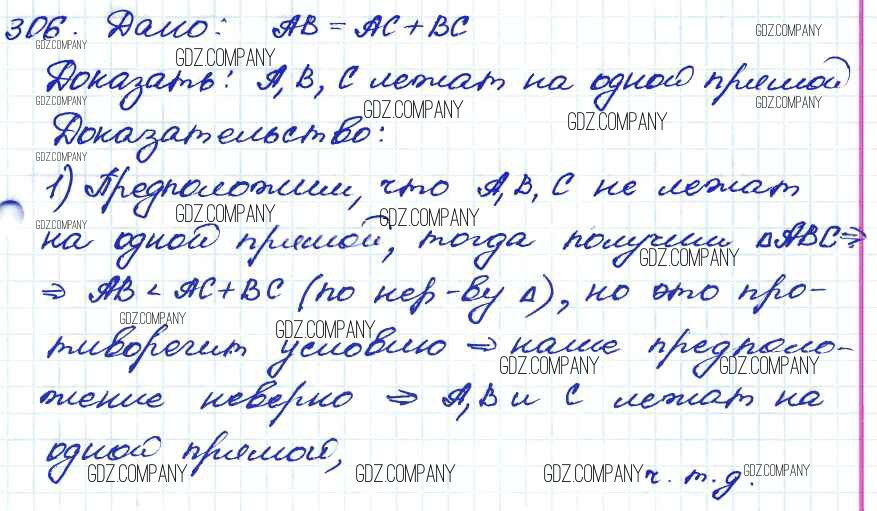 306. Дано: AB = AC + BC
GDZ.COMPANY
GDZ.COMPANY GDZ.COMPANY
Доказать: A, B, C лежат на одной прямой
GDZ.COMPANY GDZ.COMPANY GDZ.COMPANY GDZ.COMPANY
Доказательство:
GDZ.COMPANY
1) Предположим, что A, B, C не лежат
GDZ.COMPANY GDZ.COMPANY GDZ.COMPANY
на одной прямой, тогда получим ΔABC ⇒
GDZ.COMPANY
⇒ AB < AC + BC (по нер-ву Δ), но это про-
GDZ.COMPANY GDZ.COMPANY
тиворечит условию ⇒ наше предполо-
GDZ.COMPANY GDZ.COMPANY
жение неверно ⇒ A, B и C лежат на
одной прямой,
GDZ.COMPANY GDZ.COMPANY GDZ.COMPANY ч. т. д. GDZ.COMPANY